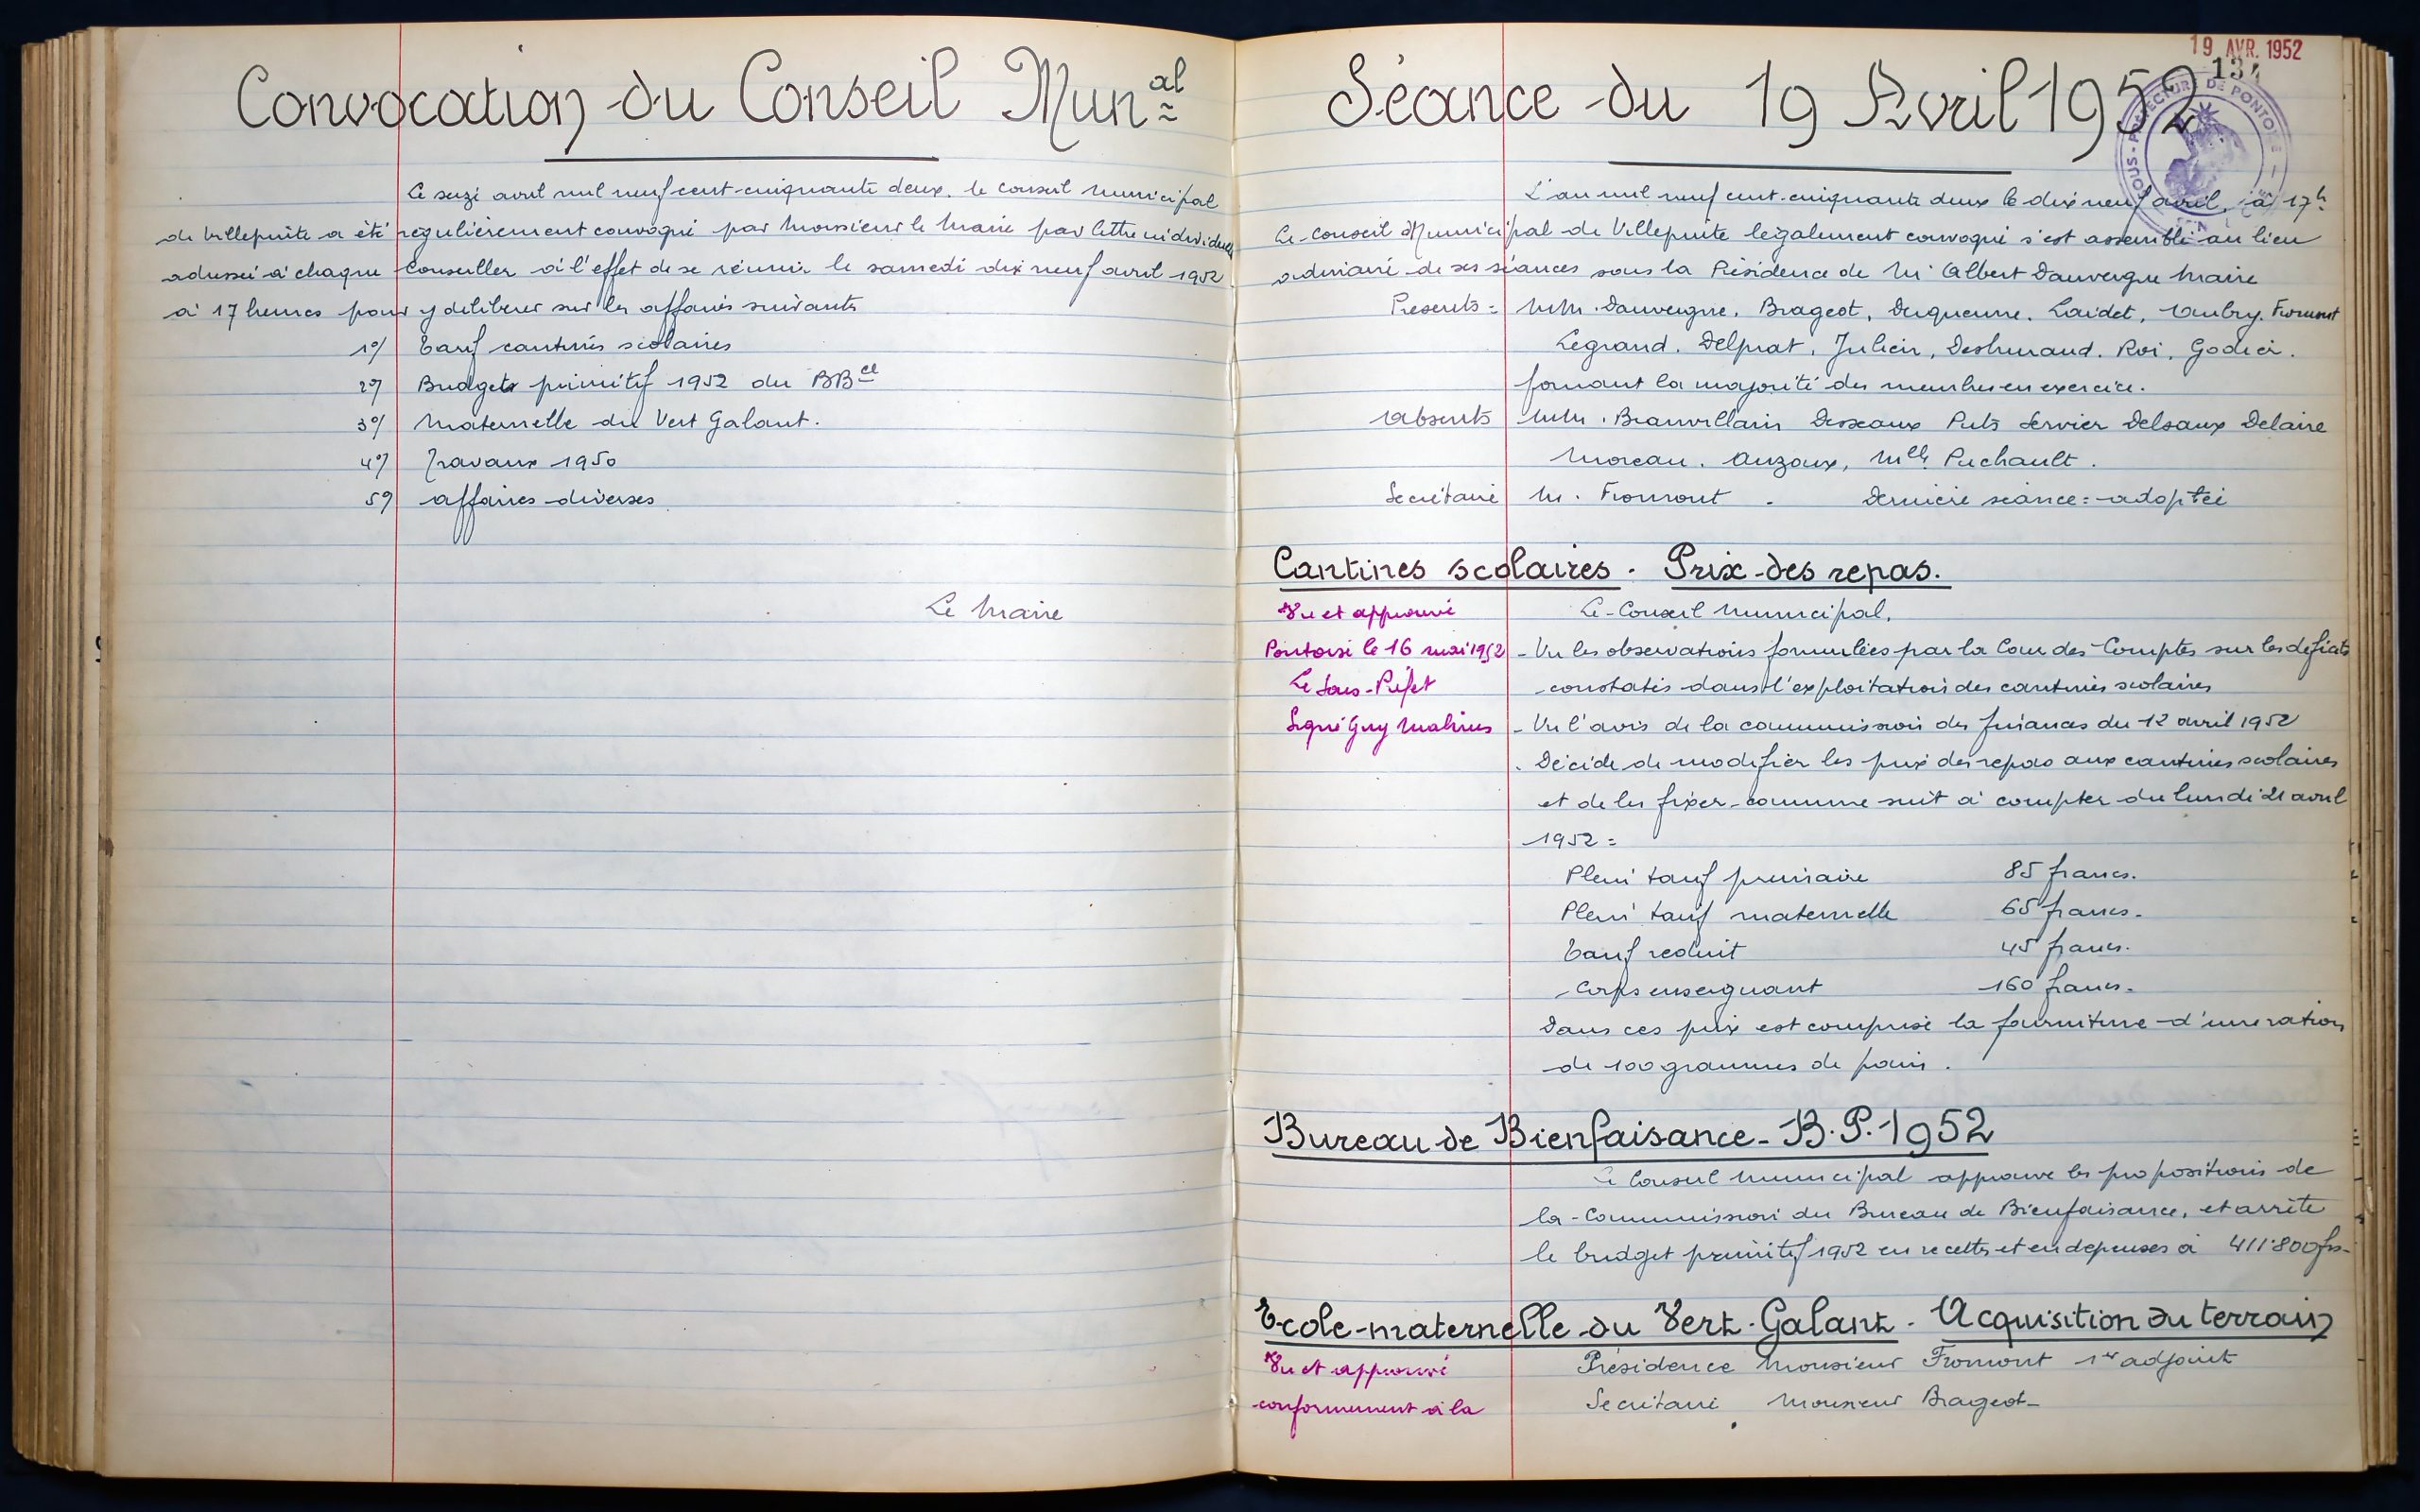 Convocation du Conseil Mun.al
Le seize avril mil neuf cent cinquante deux. le conseil municipal
de Villepinte a été regulièrement convoqué par Monsieur le Maire par lettre individuelle
adressée à chaque conseiller à l'effet de se réunir le samedi dix neuf avril 1952
à 17 heures pour y deliberer sur les affaires suivantes
1°/ Tarif cantines scolaires
2°/ Budget primitif 1952 du BBce
3°/ Maternelle du Vert Galant.
4°/ Travaux 1950
5°/ affaires diverses
Le Maire
19 AVR. 1952
134
SOUS-PREFECTURE DE PONTOISE
Séance du 19 Avril 1952
L'an mil neuf cent cinquante deux le dix neuf avril, à 17h
Le Conseil Municipal de Villepinte légalement convoqué s'est assemblé au lieu
ordinaire de ses séances sous la Présidence de M. Albert Dauvergne Maire
Presents = MM. Dauvergne. Brageot, Duquenne. Laidet, Aubry. Fromont
Legrand. Delprat, Julien, Deshuraud. Roi, Godier.
formant la majorité des membres en exercice.
Absents MM. Beauvillain Desseaux Puts Servier Delsaux Delaire
Moreau. Auzoux, Melle Puchault.
Secrétaire M. Fromont. Dernière séance = adoptée
Cantines scolaires. Prix des repas.
Vu et approuvé
Pontoise le 16 mai 1952
Le Sous-Préfet
Signé Guy Mahieus
Le Conseil Municipal,
- Vu les observations formulées par la Cour des Comptes sur les déficits
constatés dans l'exploitation des cantines scolaires
- Vu l'avis de la commission des finances du 12 avril 1952
. Décide de modifier les prix des repas aux cantines scolaires
et de les fixer comme suit à compter du lundi 21 avril
1952 =
Plein tarif primaire 85 francs.
Plein tarif maternelle 65 francs.
Tarif reduit 45 francs.
Corps enseignant 160 francs.
Dans ces prix est comprise la fourniture d'une ration
de 100 grammes de pain.
Bureau de Bienfaisance - B.P. 1952
Le Conseil Municipal approuve les propositions de
la Commission du Bureau de Bienfaisance, et arrête
le budget primitif 1952 en recettes et en depenses à 411.800 frs.
Ecole maternelle du Vert-Galant. Acquisition du terrain
Vu et approuvé
conformement à la
Présidence Monsieur Fromont 1er adjoint
Secrétaire Monsieur Brageot